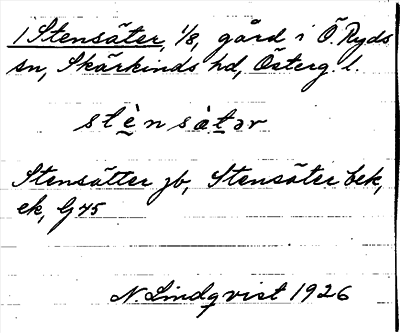 1 Stensäter, 1/8, gård i Ö. Ryds
sn, Skärkinds hd, Österg. l.
stènsàtər
Stensätter jb, Stensäter bek,
ek, G 45
N. Lindqvist 1926